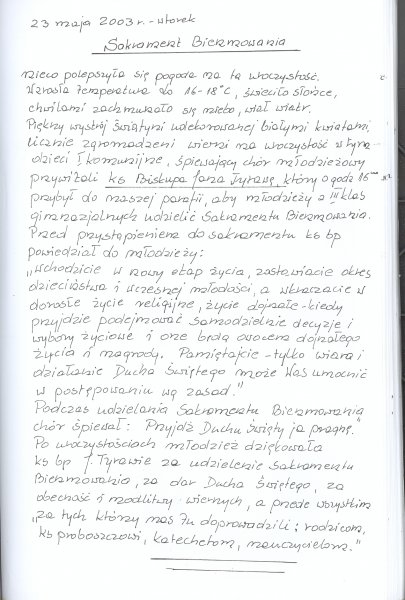 23 maja 2003 r. - wtorek
Sakrament Bierzmowania
Nieco polepszyła się pogoda na tą uroczystość.
Wzrosła temperatura do 16-18°C, świeciło słońce,
chwilami zachmurzało się niebo, wiał wiatr.
Piękny wystrój świątyni udekorowanej białymi kwiatami,
licznie zgromadzeni wierni na uroczystość w tym
dzieci I komunijne, śpiewający chór młodzieżowy
przywitali ks Biskupa Jana Tyrawę, który o godz 16
przybył do naszej parafii, aby młodzieży z III klas
gimnazjalnych udzielić Sakramentu Bierzmowania.
Przed przystąpieniem do sakramentu ks bp
powiedział do młodzieży:
„Wchodzicie w nowy etap życia, zostawiacie okres
dzieciństwa i wczesnej młodości, a wkraczacie w
dorosłe życie religijne, życie dojrzałe - kiedy
przyjdzie podejmować samodzielnie decyzje i
wybory życiowe i one będą owocem dojrzałego
życia i nagrody. Pamiętajcie - tylko wiara i
działanie Ducha Świętego może Was umocnić
w postępowaniu wg zasad."
Podczas udzielania Sakramentu Bierzmowania
chór śpiewał: Przyjdź Duchu Święty ja pragnę."
Po uroczystościach młodzież dziękowała
ks bp J. Tyrawie za udzielenie Sakramentu
Bierzmowania, za dar Ducha Świętego, za
obecność i modlitwy wiernych, a przede wszystkim
„za tych którzy nas tu doprowadzili; rodzicom,
ks proboszczowi, katechetom, nauczycielom."